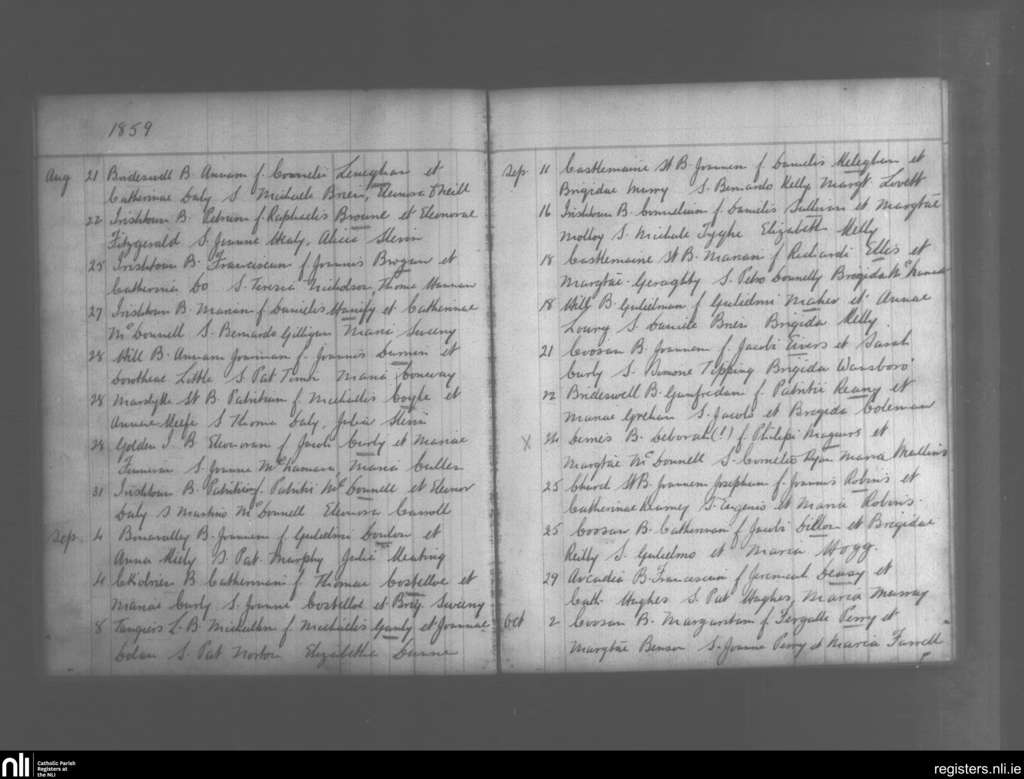 1859
Aug 21 Brideswell B Annam f. Cornelii Leneghan et
Catherinae Daly S Michaele Brien, Eleonora O'Neill
22 Irishtown B. Petrum f. Raphaelis Browne et Eleonorae
Fitzgerald S. Joanne Healy, Alicia Slevin
25 Irishtown B. Franciscum f. Joannis Brogan et
Catherina Do S. Teresia Nicholson, Thoma Hannan
27 Irishtown B. Mariam f. Danielis Hanify et Catherinae
Mc Donnell S. Bernardo Gilligan Maria Sweeny
28 Hill B. Annam Joannam f. Joannis et
Dorotheae Little S. Pat Maria Conway
28 Mardyke St B. Patritium f. Michaelis Coyle et
Annae Keefe S Thoma Daly. Julia Slevin
28 Golden I. B Eleonoram f. Jacobi Curly et Mariae
Finneran S. Joanne McNamara, Maria Cullen
31 Irishtown B. Patritium f. Patritii Mc Donnell et Eleonor
Daly S Martino McDonnell Eleonora Carroll
Sep. 4 Bonavally B. Joannem f. Gulielmi Conlon et
Anna Kiely S. Pat Murphy Julia Keating
4 B Catherinam f. Thomae Costelloe et
Mariae Curly S. Joanne Costelloe et Brig Sweeny
8 L. B Michaelem f. Michaelis Ganly et Joannae
Dolan S. Pat Norton Elizabetha Dunne
Sep 11 Castlemaine St B. Joannem f. Danielis Meleghan et
Brigidae S. Bernardo Kelly Margt Lovett
16 Irishtown B. Cornelium f. Danielis Sullivan et Margtae
Molloy S. Michaele Tyghe Elizabeth Kelly
18 Castlemaine St B. Mariam f. Richardi Ellis et
Margtae Geraghty S. Petro Donnelly Brigida
18 Hill B Gulielmum f. Gulielmi Maher et Annae
Lowry S Daniele Brien Brigida Kelly
21 Coosan B. Joannem f. Jacobi Eivers et Sarah
Curly S. Simone Tipping Brigida Wansboro'
22 Brideswell B. Ganfredum f. Patritii Keany et
Mariae Grehan S. Jacobo et Brigida Coleman
X 24 B. Deborah (!) f Philipi Maguire et
Margtae McDonnell S. Cornelio Ryan Maria Mullins
25 Church St B. Joannem Josephum f. Joannis Robins et
Catherinae Kearney S. Eugenio et Maria Robins
25 Coosan B. Catherinam f. Jacobi Dillon et Brigidae
Reilly S. Gulielmo et Maria Hogg.
29 Arcadia B. Franciscum f. Jeremiah Deasy et
Cath. Hughes S. Pat Hughes, Maria Murray
Oct 2 Coosan B. Margaritam f. Fergalle Perry et
Margtae Benson S. Joanne Perry et Maria Farrell
nli
Catholic Parish
Registers at
the NLI
registers.nli.ie